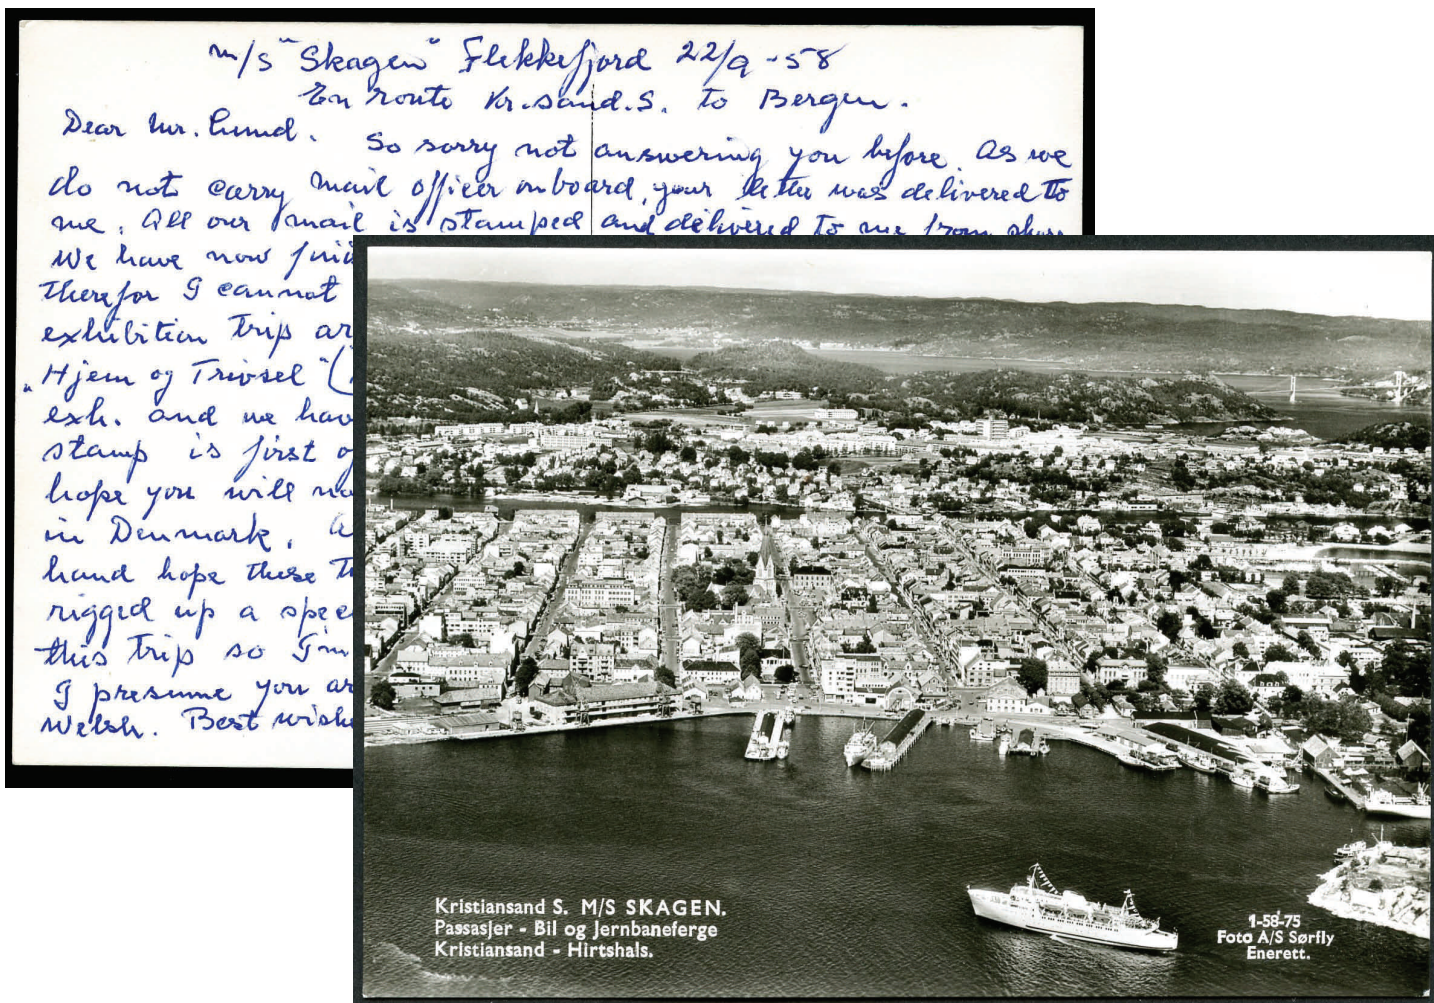 m/s "Skagen" Flekkefjord 22/9 -58
En route Kr.sand.S. to Bergen.
Dear Mr. Lund.
So sorry not answering you before. As we
do not carry mail officer onboard, your letter was delivered to
me. All our mail is stamped and delivered to me from shore
We have now
therefor I cannot
exhibition trip
"Hjem og Trivsel" (
exh. and we hav
stamp is first o
hope you will no
in Denmark. A
hand hope these
rigged up a spec
this trip so I'm
I presume you ar
Welsh. Best wishe
Kristiansand S. M/S SKAGEN.
Passasjer - Bil og Jernbaneferge
Kristiansand - Hirtshals.
1-58-75
Foto A/S Sørfly
Enerett.